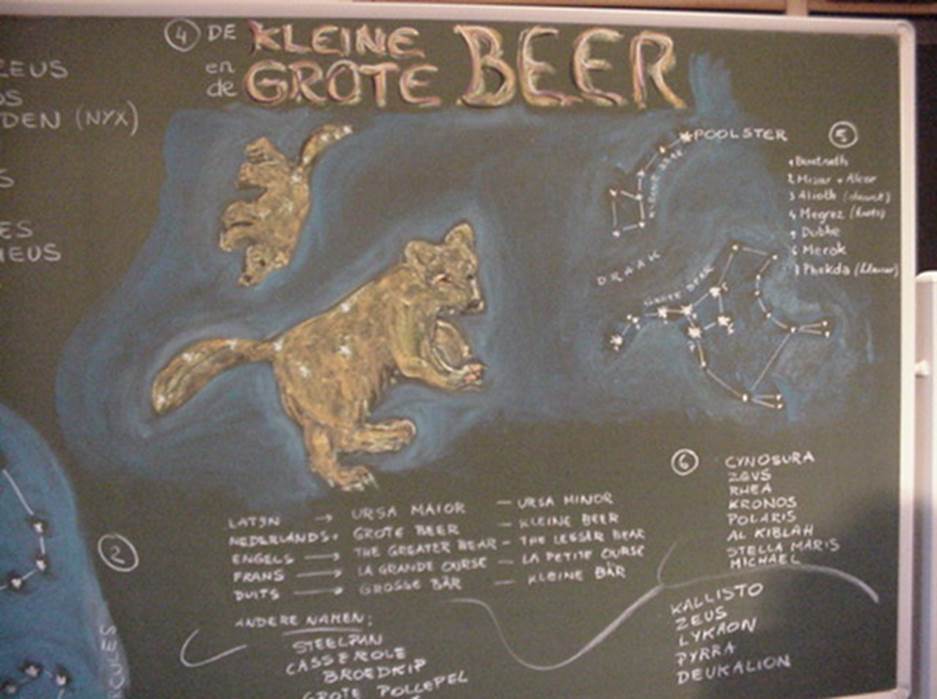 ④ DE KLEINE
en
de GROTE BEER
ZEUS
OS
DEN (NYX)
S
ES
HEUS
POOLSTER
KLEINE BEER
DRAAK
GROTE BEER
⑤
1 Benetnath
2 Mizar + Alcor
3 Alioth
4 Megrez
5 Dubhe
6 Merok
7 Phekda
②
LATIJN → URSA MAIOR — URSA MINOR
NEDERLANDS: GROTE BEER — KLEINE BEER
ENGELS → THE GREATER BEAR — THE LESSER BEAR
FRANS → LA GRANDE OURSE — LA PETITE OURSE
DUITS → GROSSE BÄR — KLEINE BÄR
ANDERE NAMEN:
STEELPAN
CASSEROLE
BROEDKIP
GROTE POLLEPEL
⑥
CYNOSURA
ZEUS
RHEA
KRONOS
POLARIS
AL KIBLAH
STELLA MARIS
MICHAEL
KALLISTO
ZEUS
LYKAON
PYRRA
DEUKALION
RCULES